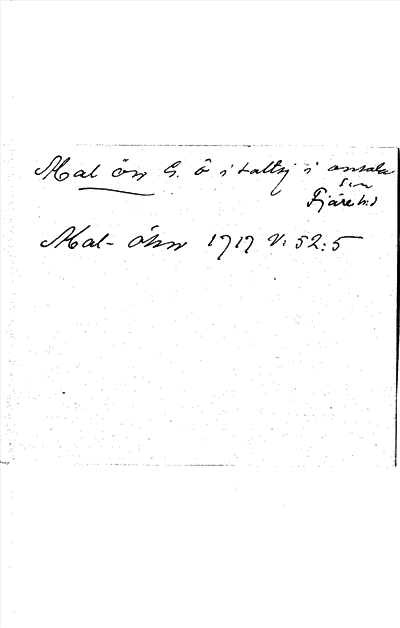 Malön G. ö i saltsj i onsala
s:n
Fjäre hd
Mal-öhn 1717 V: 52:5